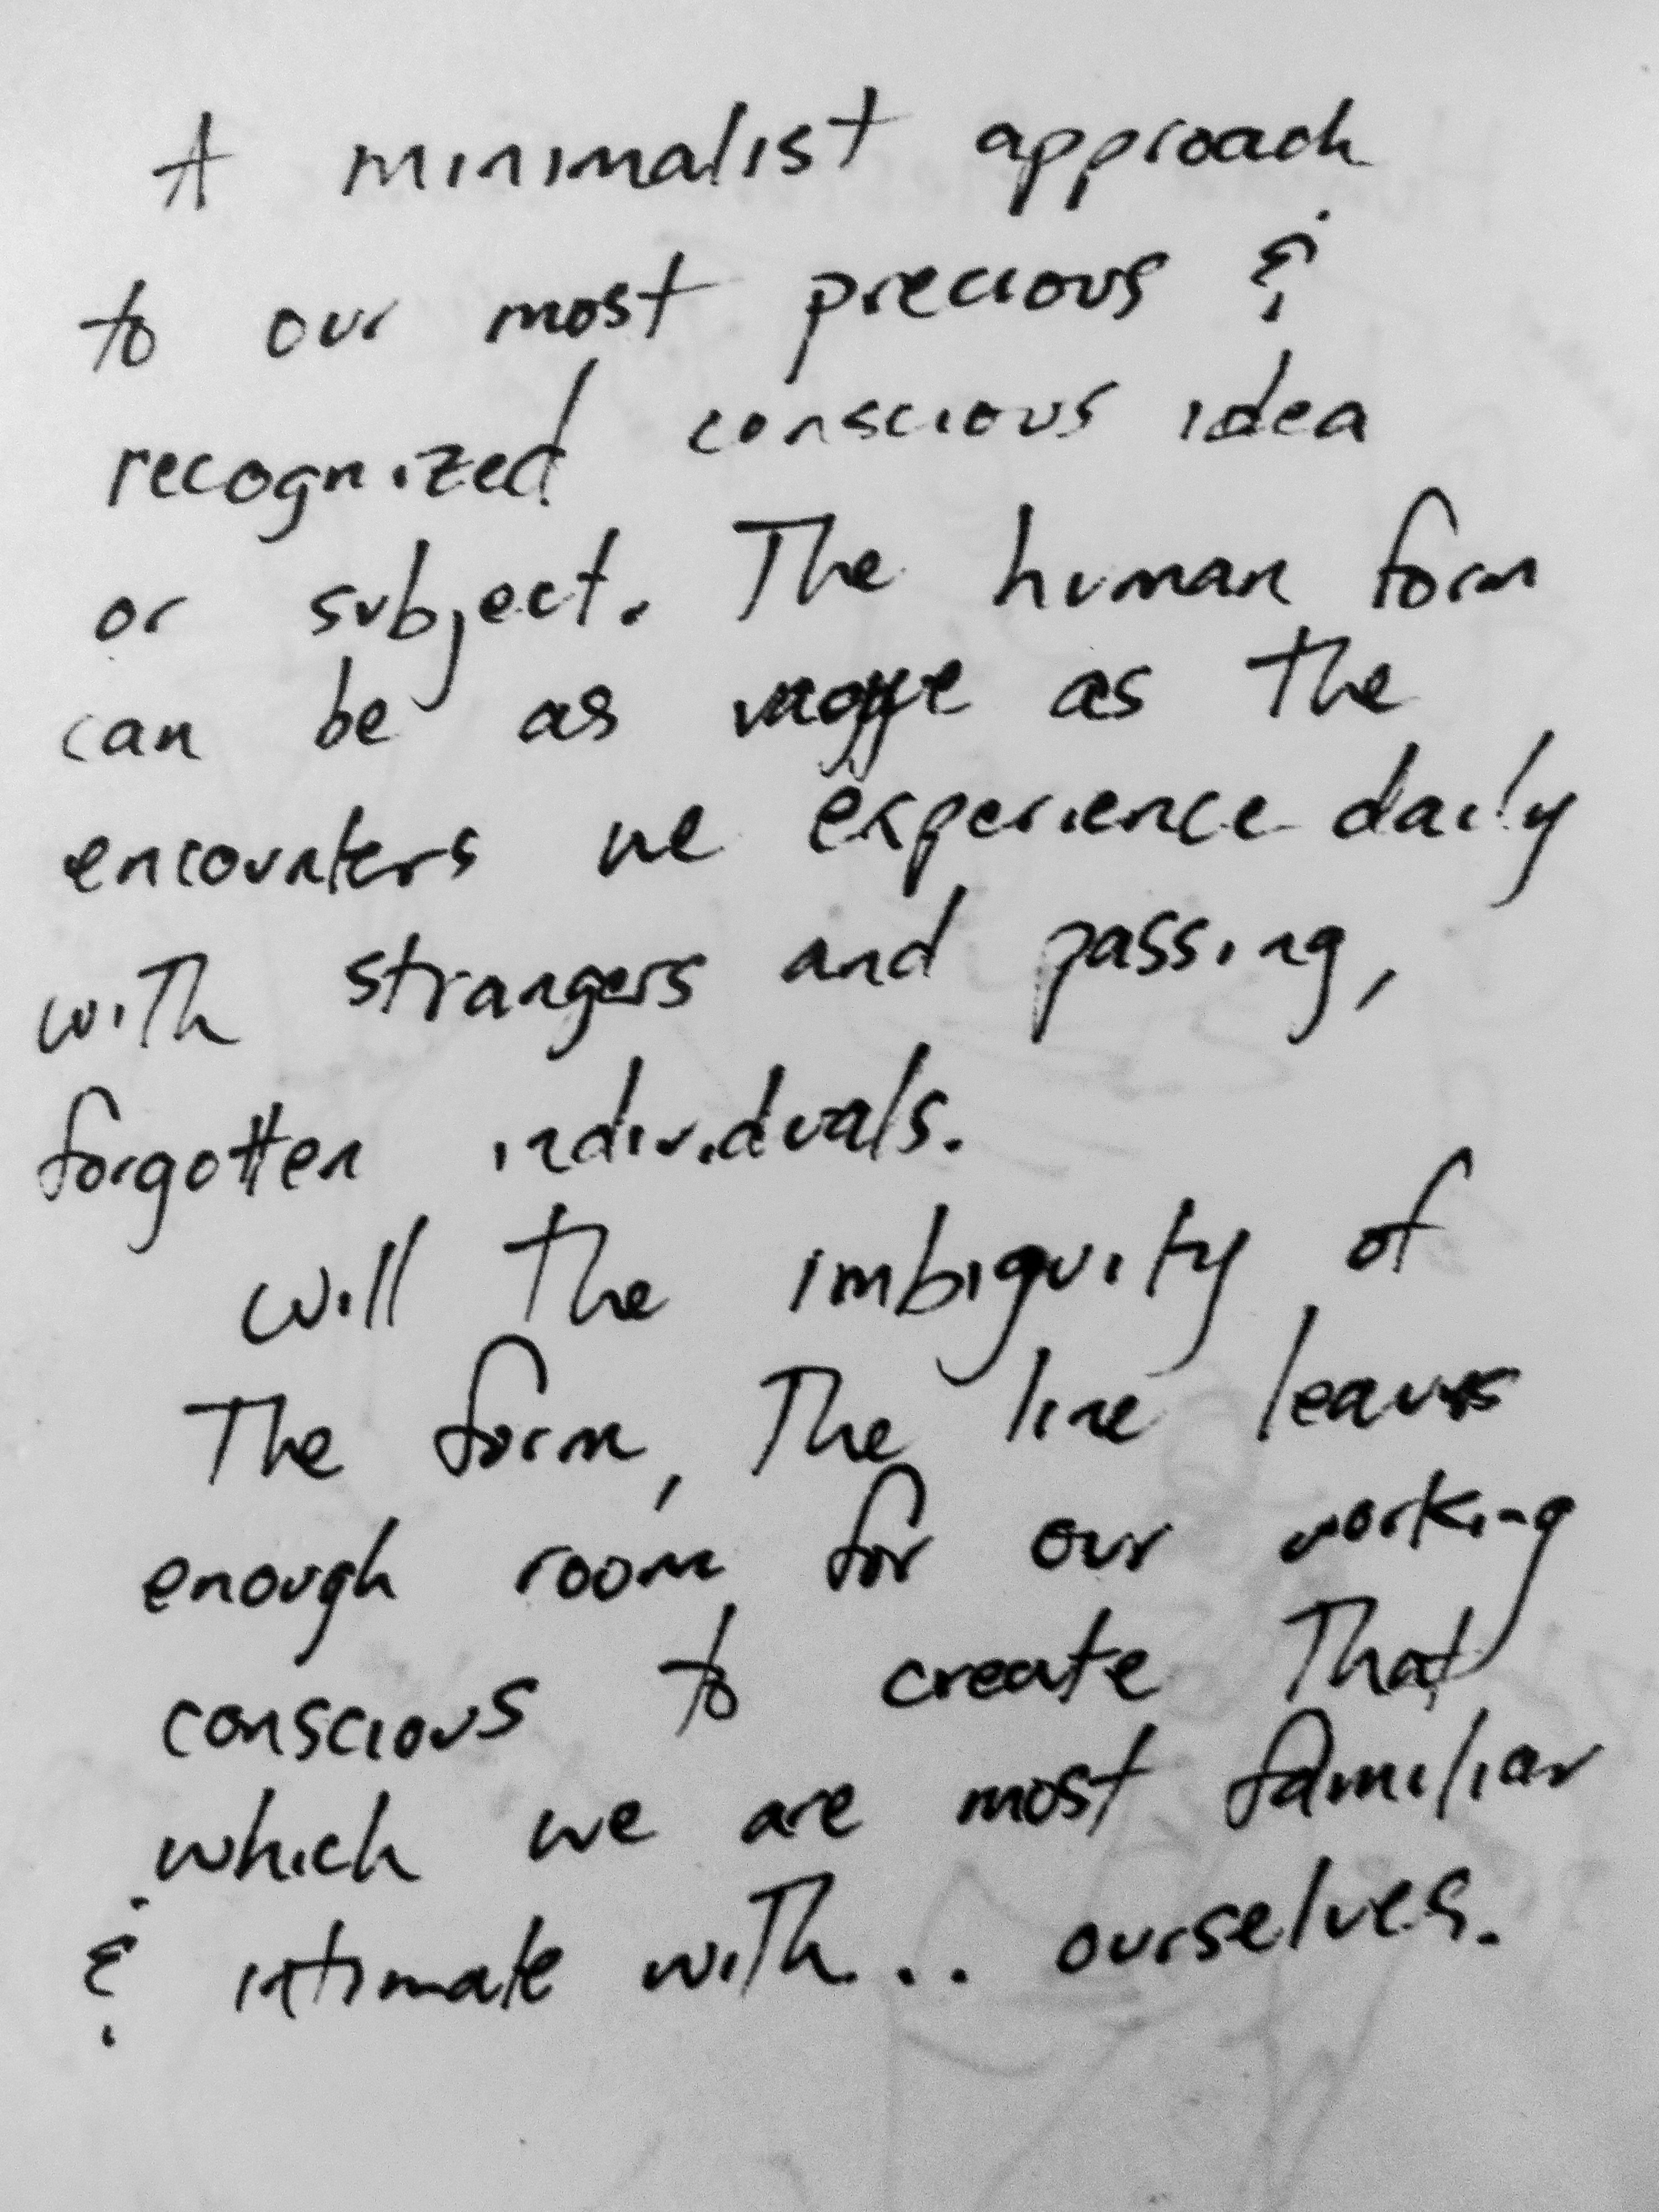 A minimalist approach
to our most precious &
recognized conscious idea
or subject. The human form
can be as vague as the
encounters we experience daily
with strangers and passing,
forgotten individuals.
will the imbiguity of
The form, The line leaves
enough room for our working
conscious to create That
which we are most familiar
& intimate with... ourselves.